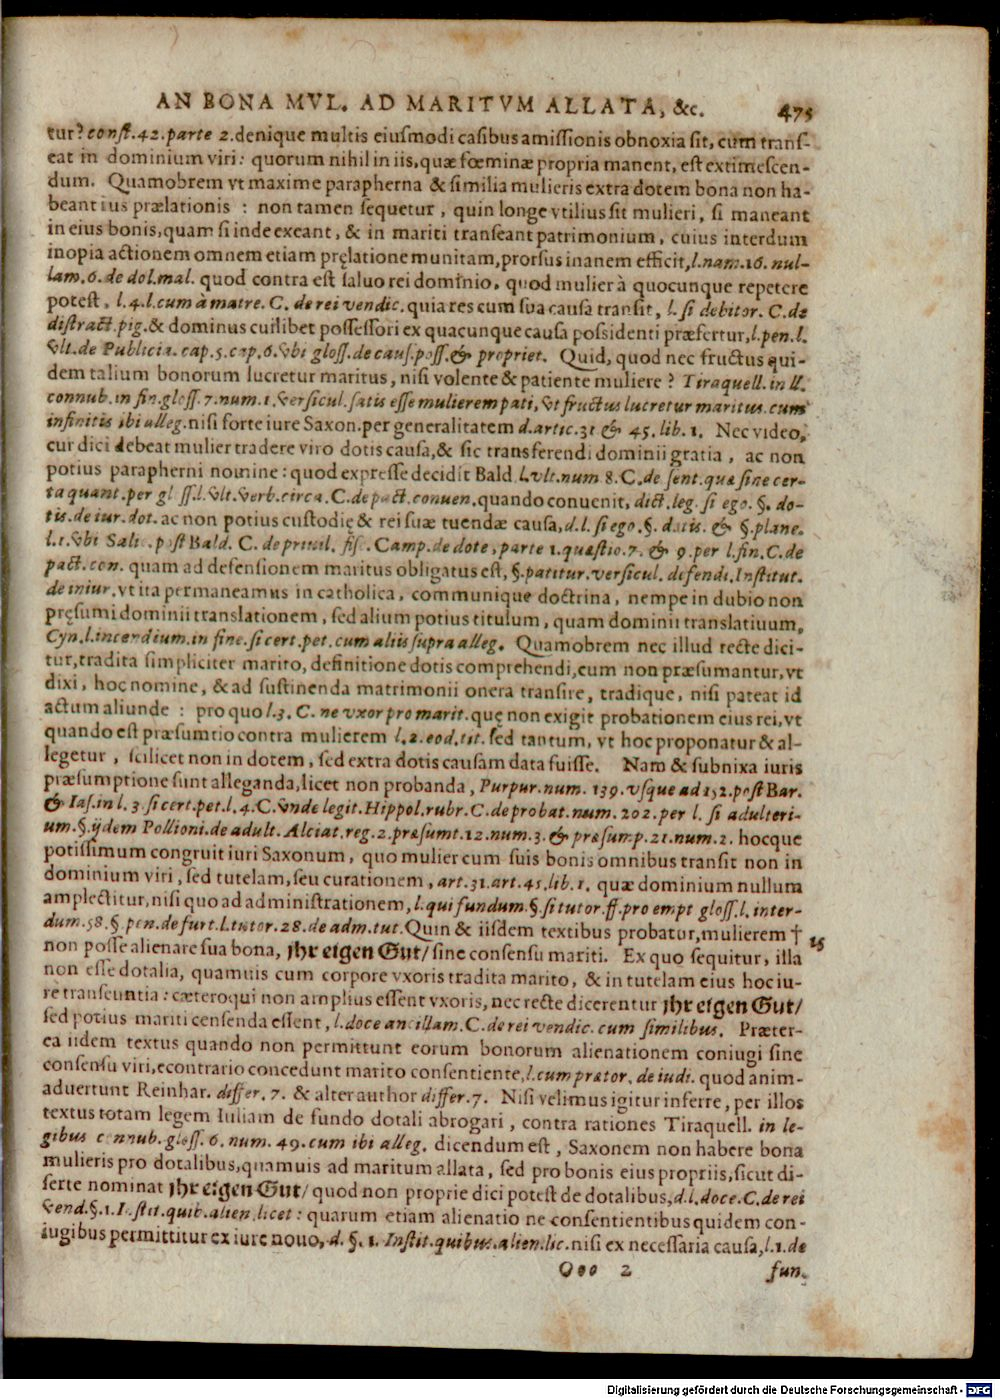 AN BONA MVL. AD MARITVM ALLATA, &c. 475
tur? const. 42. parte 2. denique multis eiusmodi casibus amissionis obnoxia sit, cum trans-
eat in dominium viri: quorum nihil in iis, quæ fœminæ propria manent, est extimescen-
dum. Quamobrem vt maxime parapherna & similia mulieris extra dotem bona non ha-
beant ius prælationis : non tamen sequetur, quin longe vtilius sit mulieri, si maneant
in eius bonis, quam si inde exeant, & in mariti transeant patrimonium, cuius interdum
inopia actionem omnem etiam pręlatione munitam, prorsus inanem efficit, l. nam. 16. nul-
lam. 6. de dol. mal. quod contra est saluo rei dominio, quod mulier à quocunque repetere
potest, l. 4. l. cum à matre. C. de rei vendic. quia res cum sua causa transit, l. si debitor. C. de
distract. pig. & dominus cuilibet possessori ex quacunque causa possidenti præfertur, l. pen. l.
vlt. de Publicia. cap. 5. cap. 6. vbi gloss. de caus. poss. & propriet. Quid, quod nec fructus qui-
dem talium bonorum lucretur maritus, nisi volente & patiente muliere? Tiraquell. in ll.
connub. in fin. gloss. 7. num. 1. versicul. satis esse mulierem pati, vt fructus lucretur maritus. cum
infinitis ibi alleg. nisi forte iure Saxon. per generalitatem d. artic. 31 & 45. lib. 1. Nec video,
cur dici debeat mulier tradere viro dotis causa, & sic transferendi dominii gratia, ac non
potius parapherni nomine: quod expresse decidit Bald. l. vlt. num 8. C. de sent. quæ sine cer-
ta quant. per gl ss. l. vlt. verb. circa. C. de pact. conuen. quando conuenit, dict. leg. si ego. §. do-
tis. de iur. dot. ac non potius custodię & rei suæ tuendæ causa, d. l. si ego. §. dotis. & §. plane.
l. 1. vbi Salic. post Bald. C. de priuil. fisc. Camp. de dote, parte 1. quæstio. 7. & 9. per l. fin. C. de
pact. con. quam ad defensionem maritus obligatus est, §. patitur. versicul. defendi. Institut.
de iniur. vt ita permaneamus in catholica, communique doctrina, nempe in dubio non
pręsumi dominii translationem, sed alium potius titulum, quam dominii translatiuum,
Cyn. l. incendium. in fine. si cert. pet. cum aliis supra alleg. Quamobrem nec illud recte dici-
tur, tradita simpliciter marito, definitione dotis comprehendi, cum non præsumantur, vt
dixi, hoc nomine, & ad sustinenda matrimonii onera transire, tradique, nisi pateat id
actum aliunde : pro quo l. 3. C. ne vxor pro marit. quę non exigit probationem eius rei, vt
quando est præsumtio contra mulierem l. 2. eod. tit. sed tantum, vt hoc proponatur & al-
legetur, scilicet non in dotem, sed extra dotis causam data fuisse. Nam & subnixa iuris
præsumptione sunt alleganda, licet non probanda, Purpur. num. 139. vsque ad 152. post Bar.
& Ias. in l. 3. si cert. pet. l. 4. C. vnde legit. Hippol. rubr. C. de probat. num. 202. per l. si adulteri-
um. §. ijdem Pollioni. de adult. Alciat. reg. 2. præsumt. 12. num. 3. & præsump. 21. num. 2. hocque
potissimum congruit iuri Saxonum, quo mulier cum suis bonis omnibus transit non in
dominium viri, sed tutelam, seu curationem, art. 31. art. 45. lib. 1. quæ dominium nullum
amplectitur, nisi quo ad administrationem, l. qui fundum. §. si tutor. ff. pro empt gloss. l. inter-
dum. 58. §. pen. de furt. l. tutor. 28. de adm. tut. Quin & iisdem textibus probatur, mulierem † 15
non posse alienare sua bona, jhr eigen Gut/ sine consensu mariti. Ex quo sequitur, illa
non esse dotalia, quamuis cum corpore vxoris tradita marito, & in tutelam eius hoc iu-
re transeuntia: cæteroqui non amplius essent vxoris, nec recte dicerentur jhr eigen Gut/
sed potius mariti censenda essent, l. doce ancillam. C. de rei vendic. cum similibus. Præter-
ea iidem textus quando non permittunt eorum bonorum alienationem coniugi sine
consensu viri, econtrario concedunt marito consentiente, l. cum prætor. de iudi. quod anim-
aduertunt Reinhar. differ. 7. & alter author differ. 7. Nisi velimus igitur inferre, per illos
textus totam legem Iuliam de fundo dotali abrogari, contra rationes Tiraquell. in le-
gibus connub. gloss. 6. num. 49. cum ibi alleg. dicendum est, Saxonem non habere bona
mulieris pro dotalibus, quamuis ad maritum allata, sed pro bonis eius propriis, sicut di-
serte nominat jhr eigen Gut/ quod non proprie dici potest de dotalibus, d. l. doce. C. de rei
vend. §. 1. Instit. quib. alien. licet: quarum etiam alienatio ne consentientibus quidem con-
iugibus permittitur ex iure nouo, d. §. 1. Instit. quibus. alien. lic. nisi ex necessaria causa, l. 1. de
Ooo 2 fun.
Digitalisierung gefördert durch die Deutsche Forschungsgemeinschaft - DFG